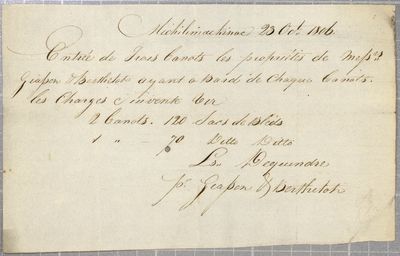 Michilimackinac 23 Oct. 1806
Entrée de Trois Canots les propriétés de Mess.rs
Giasson & Berthelot ayant a bord de Chaque Canots
les Charges
2 Canots. 120 Sacs de Bleds
1 " — 70 Ditto Ditto
Dequindre
pr. Giasson & Berthelot